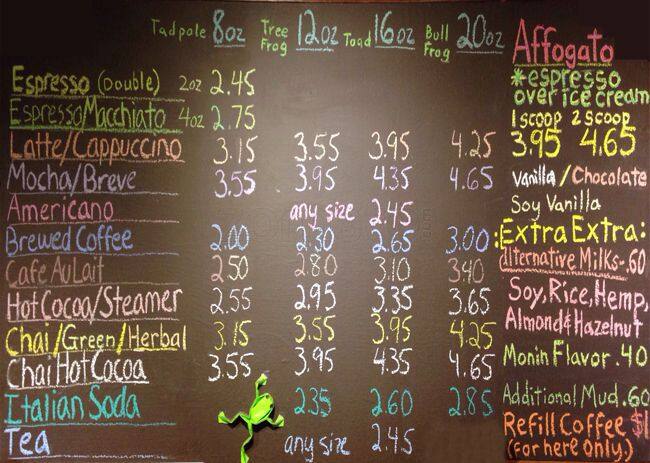 Tadpole 8oz Tree Frog 12oz Toad 16oz Bull Frog 20oz
Espresso (Double) 2oz 2.45
Espresso Macchiato 4oz 2.75
Latte/Cappuccino 3.15 3.55 3.95 4.25
Mocha/Breve 3.55 3.95 4.35 4.65
Americano any size 2.45
Brewed Coffee 2.00 2.30 2.65 3.00
Cafe Au Lait 2.50 2.80 3.10 3.40
Hot Cocoa/Steamer 2.55 2.95 3.35 3.65
Chai/Green/Herbal 3.15 3.55 3.95 4.25
Chai Hot Cocoa 3.55 3.95 4.35 4.65
Italian Soda 2.35 2.60 2.85
Tea any size 2.45
Affogato
*espresso
over ice cream
1 scoop 2 scoop
3.95 4.65
Vanilla/Chocolate
Soy Vanilla
Extra Extra:
alternative Milks-.60
Soy, Rice, Hemp,
Almond & Hazelnut
Monin Flavor .40
Additional Mud .60
Refill Coffee $1
(for here only.)